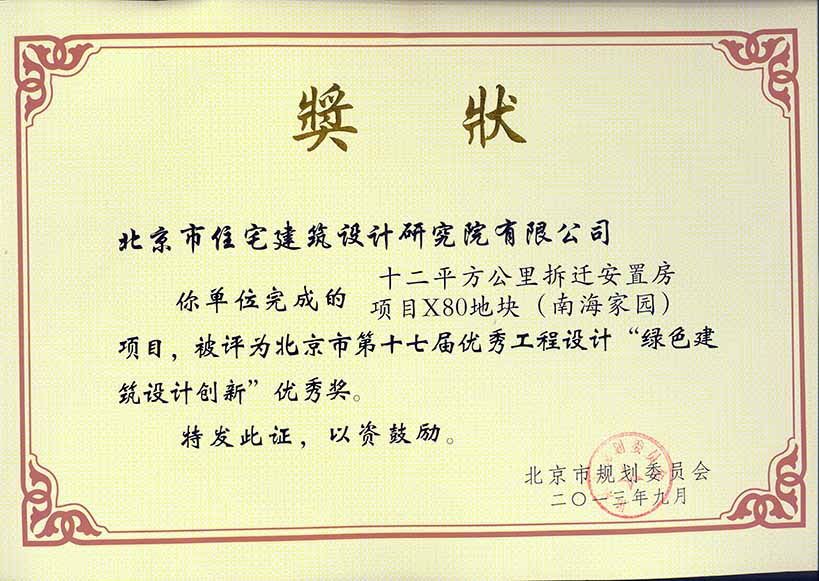 獎狀
北京市住宅建筑设计研究院有限公司
你单位完成的 十二平方公里拆迁安置房
项目X80地块（南海家园）
项目，被评为北京市第十七届优秀工程设计“绿色建
筑设计创新”优秀奖。
特发此证，以资鼓励。
北京市规划委员会
二〇一三年九月